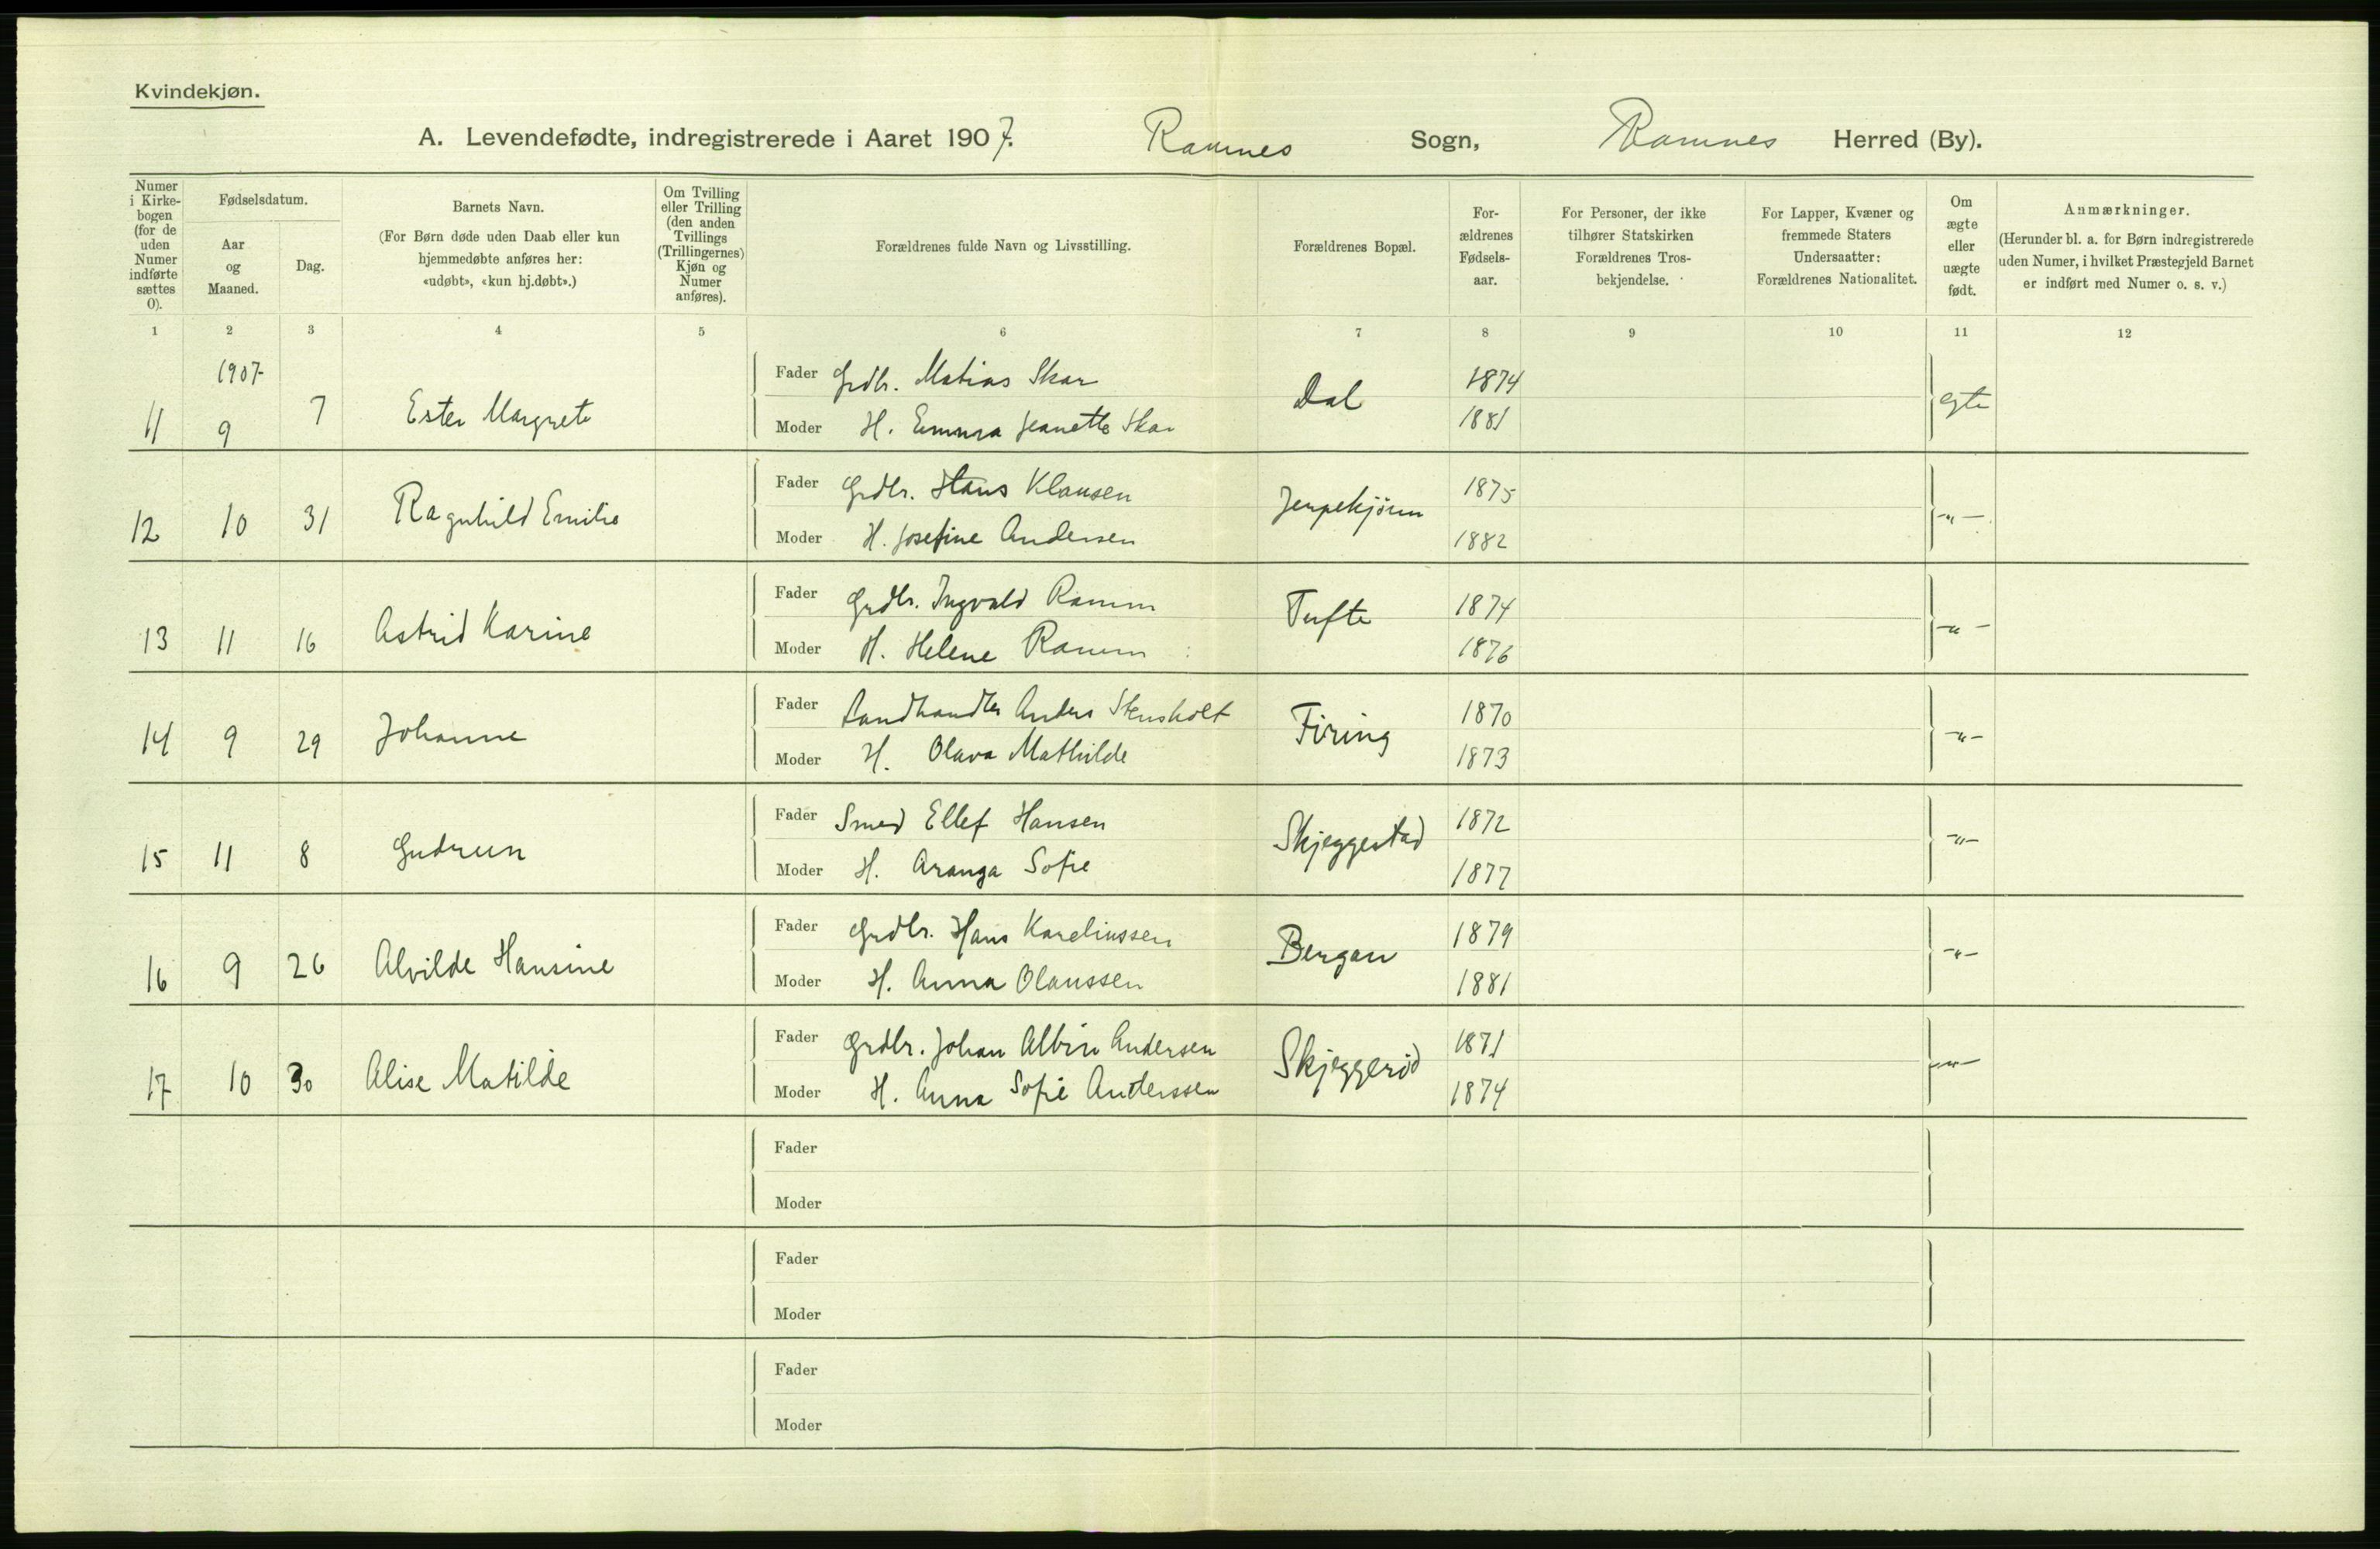 Kvindekjøn.
A. Levendefødte, indregistrerede i Aaret 1907. Ramnes Sogn, Ramnes Herred (By).
Numer i Kirkebogen (for de uden Numer indførte sættes 0).
Fødselsdatum.
Aar og Maaned.
Dag.
Barnets Navn.
(For Børn døde uden Daab eller kun hjemmedøbte anføres her: «udøbt», «kun hj.døbt».)
Om Tvilling eller Trilling (den anden Tvillings (Trillingernes) Kjøn og Numer anføres).
Forældrenes fulde Navn og Livsstilling.
Forældrenes Bopæl.
Forældrenes Fødselsaar.
For Personer, der ikke tilhører Statskirken Forældrenes Trosbekjendelse.
For Lapper, Kvæner og fremmede Staters Undersaatter: Forældrenes Nationalitet.
Om ægte eller uægte født.
Anmærkninger.
(Herunder bl. a. for Børn indregistrerede uden Numer, i hvilket Præstegjeld Barnet er indført med Numer o. s. v.)
1 2 3 4 5 6 7 8 9 10 11 12
1907
Fader Grdbr. Matias Skar 1874
11 9 7 Ester Margrete Dal egte
Moder H. Emma Jeanette Skar 1881
Fader Grdbr. Hans Klausen 1875
12 10 31 Ragnhild Emilie -"-
Moder H. Josefine Andersen 1882
Fader Grdbr. Ingvald Ramm 1874
13 11 16 Astrid Karine Tufte -"-
Moder H. Helene Ramm 1876
Fader Landhandler Anders Stensholt 1870
14 9 29 Johanne Firing -"-
Moder H. Olava Mathilde 1873
Fader Smed Ellef Hansen 1872
15 11 8 Gudrun Skjeggestad -"-
Moder H. Aranga Sofie 1877
Fader Grdbr. Hans Kareliussen 1879
16 9 26 Alvilde Hansine Bergan -"-
Moder H. Anna Olaussen 1881
Fader Grdbr. Johan Albin Andersen 1871
17 10 30 Alise Matilde Skjeggerød -"-
Moder H. Anna Sofie Anderssen 1874
Fader
Moder
Fader
Moder
Fader
Moder